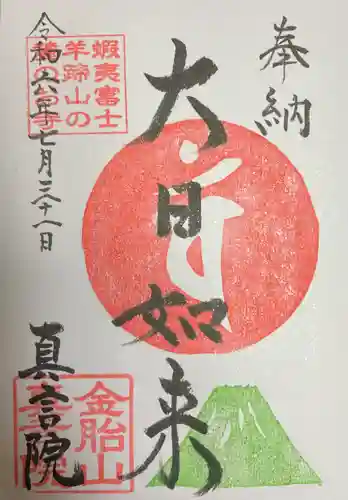 奉納
大日如来
令和六年七月三十一日
蝦夷富士
羊蹄山の
真言院
金胎山
真言院